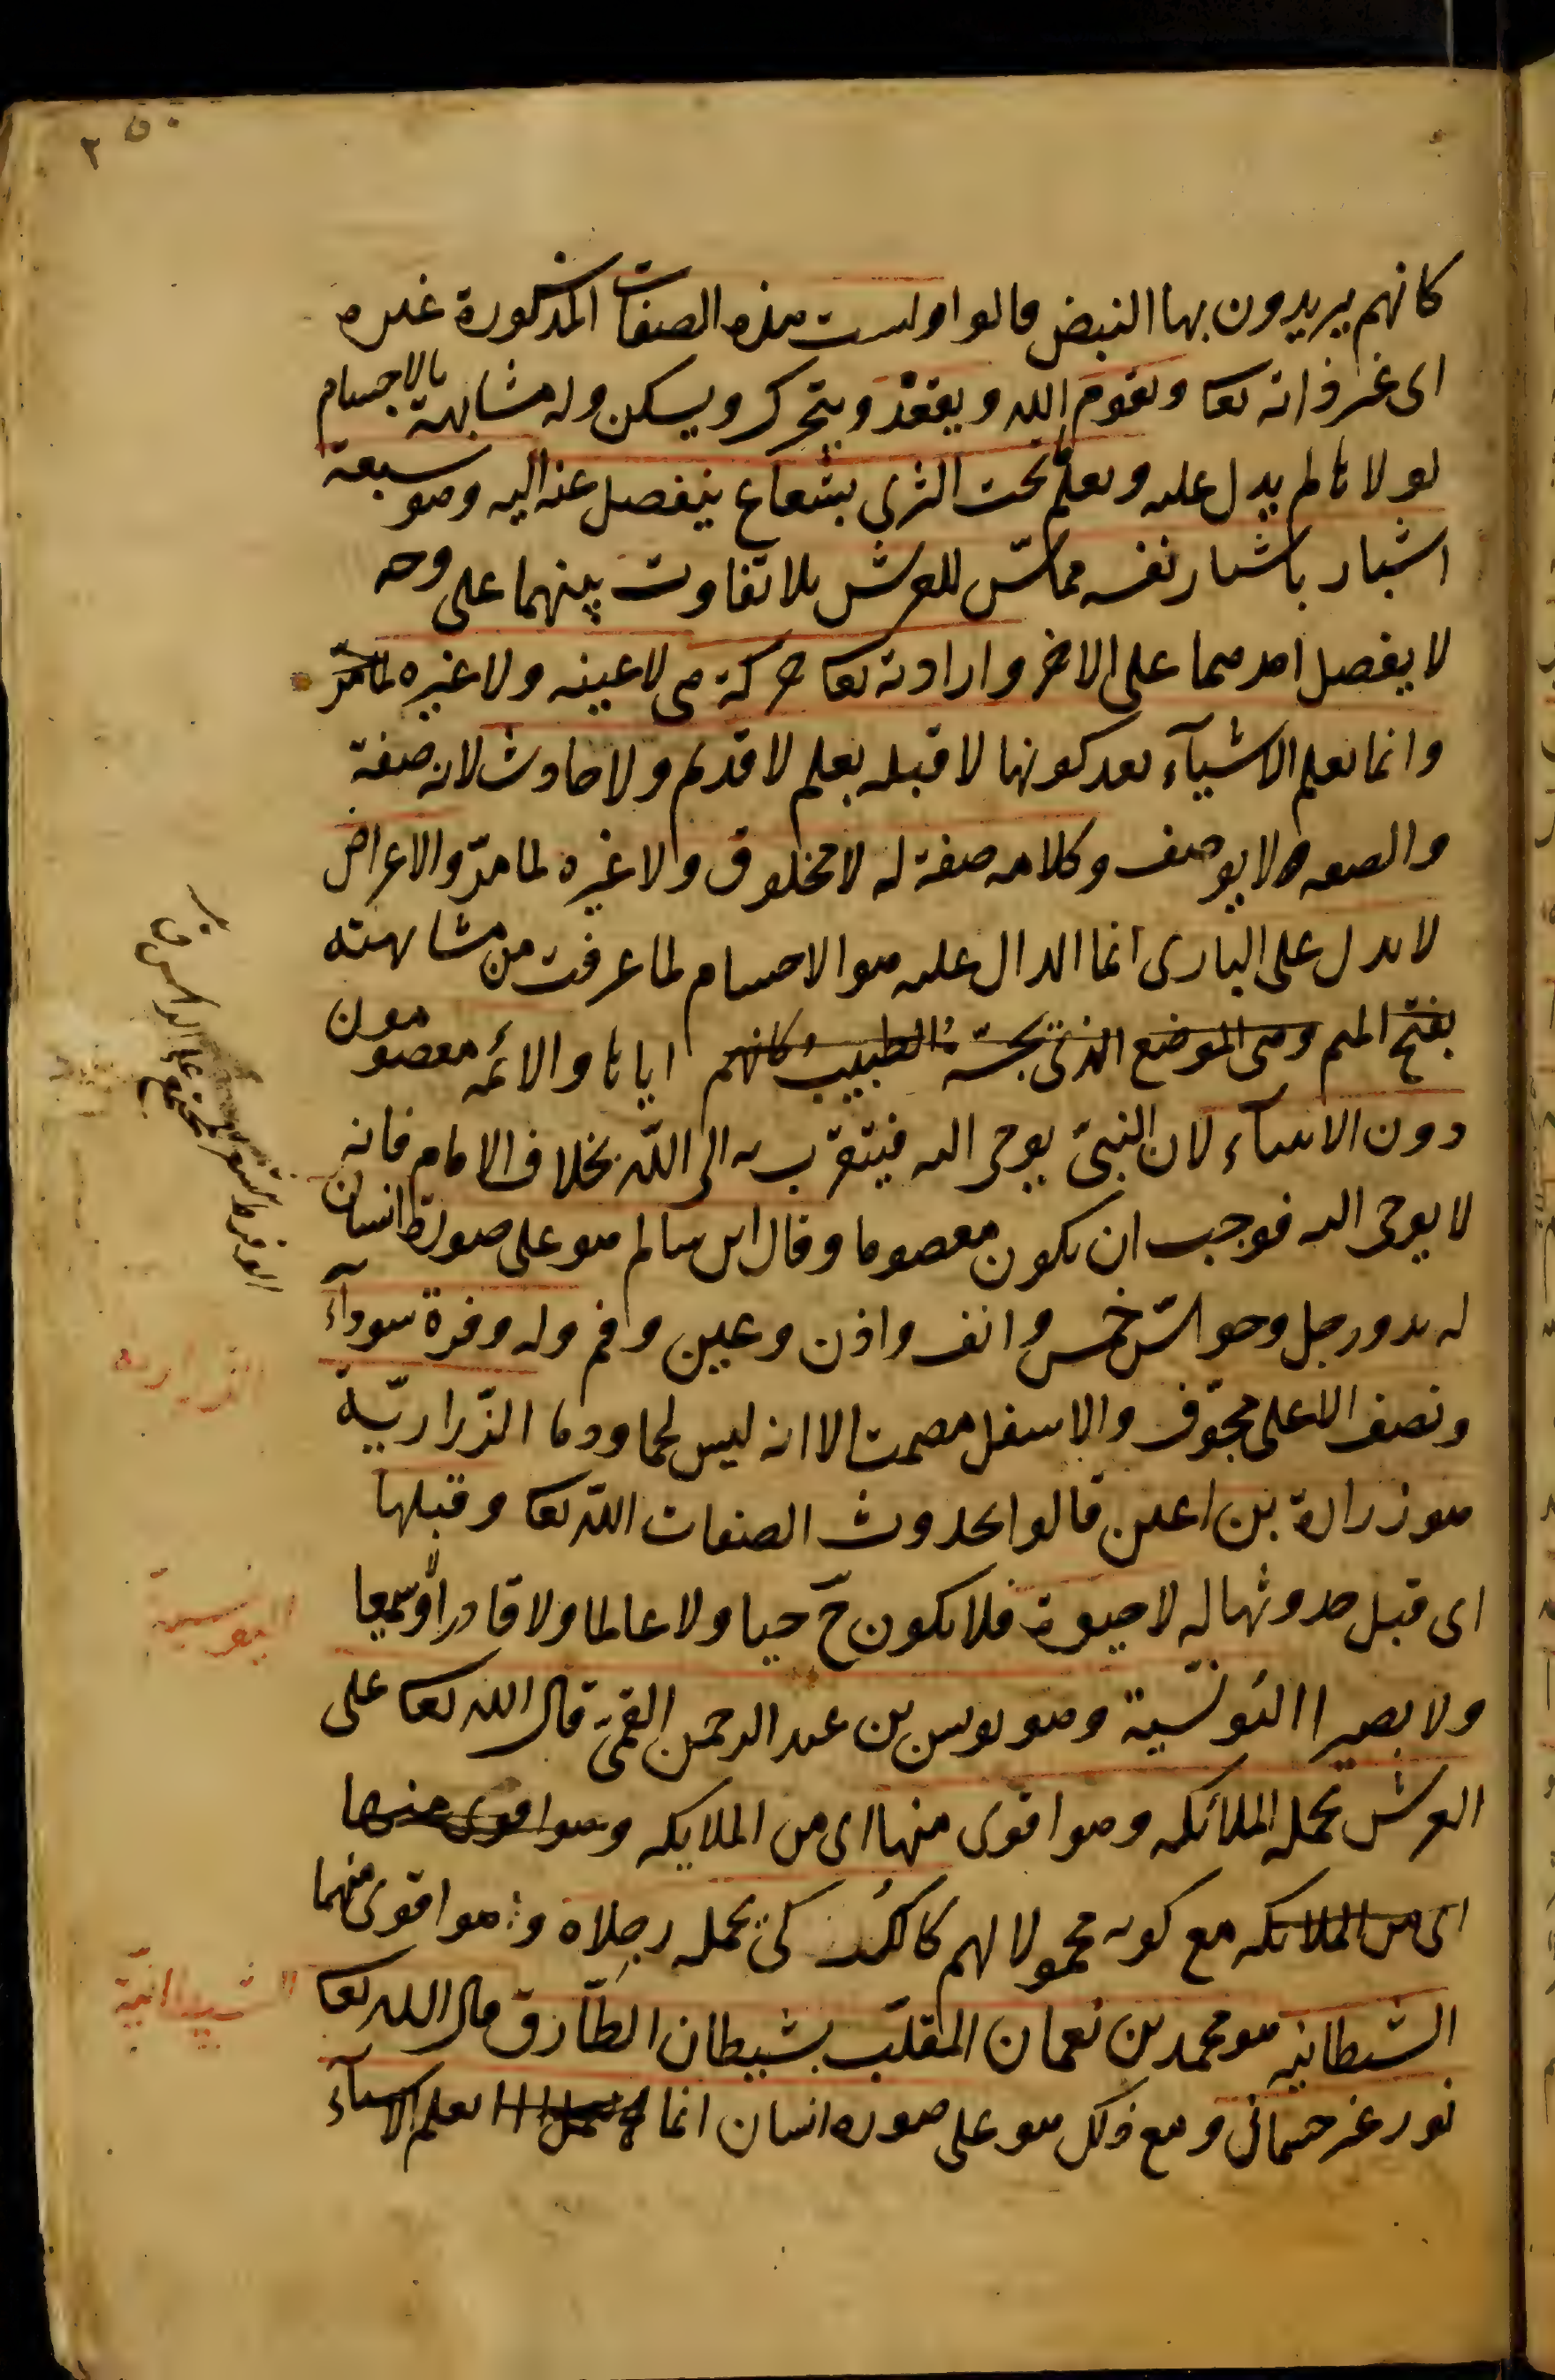 كانهم يريدون بها النبض قالوا وليست هذه الصفات المذكورة غيره
اى غير ذاته تعا ويقوم الله ويقعد ويتحرك ويسكن وله مشابهة بالاجسام
لولاها لم يدل عليه ويعلم ما تحت الثرى بشعاع ينفصل عنه اليه وهو سبعة
اشبار باشبار نفسه مماسّ للعرش بلا تفاوت بينهما على وجه
لا يفصل احدهما على الاخر وارادته تعا حركة هى لا عينه ولا غيره لما مرّ
وانما يعلم الاشيآء بعد كونها لا قبله بعلم لا قديم ولا حادث لانه صفة
والصفه لا يوصف وكلامه صفة له لا مخلوق ولا غيره لما مرّ والاعراض
لا يدل على البارى انما الدال عليه هو الاجسام لما عرفت من مشابهته
بفتح الميم وهى الموضع الذى يجسّه الطبيب كانهم اياها والائمه معصومون
دون الانبيآء لان النبىّ يوحى اليه فيتقرّب به الى اللّه بخلاف الامام فانه
لا يوحى اليه فوجب ان يكون معصوما وقال ابن سالم هو على صورة انسان
له يد ورجل وحواسّ خمس وانف واذن وعين وفم وله وفرة سودآء
ونصفه الاعلى مجوّف والاسفل مصمت الا انه ليس لحما ودما الزّراريّة
هو زرارة بن اعين قالوا بحدوث الصفات اللّه تعا وقبلها
اى قبل حدوثها له لا حيوة فلا يكون حَ حيا ولا عالما ولا قادرا ولا سميعا
ولا بصيرا اليونسّية وهو يونس بن عبد الرحمن القمّى قال الله تعا على
العرش يحمله الملائكه وهو اقوى منها اى من الملايكه وهو اقوى منها
اى من الملائكه مع كونه محمولا لهم كالكُرَكى يحمله رجلاه وهو اقوى منهما
الشيطانيه هو محمد بن نعمان الملقّب بشيطان الطّارق قال الله تعا
نور غير جسمانى ومع ذلك هو على صوره انسان انما يعلم الاشيآء
الوفرة الشعر المجتمع على الراس ق
الزراريه
اليونسية
الشيطانية